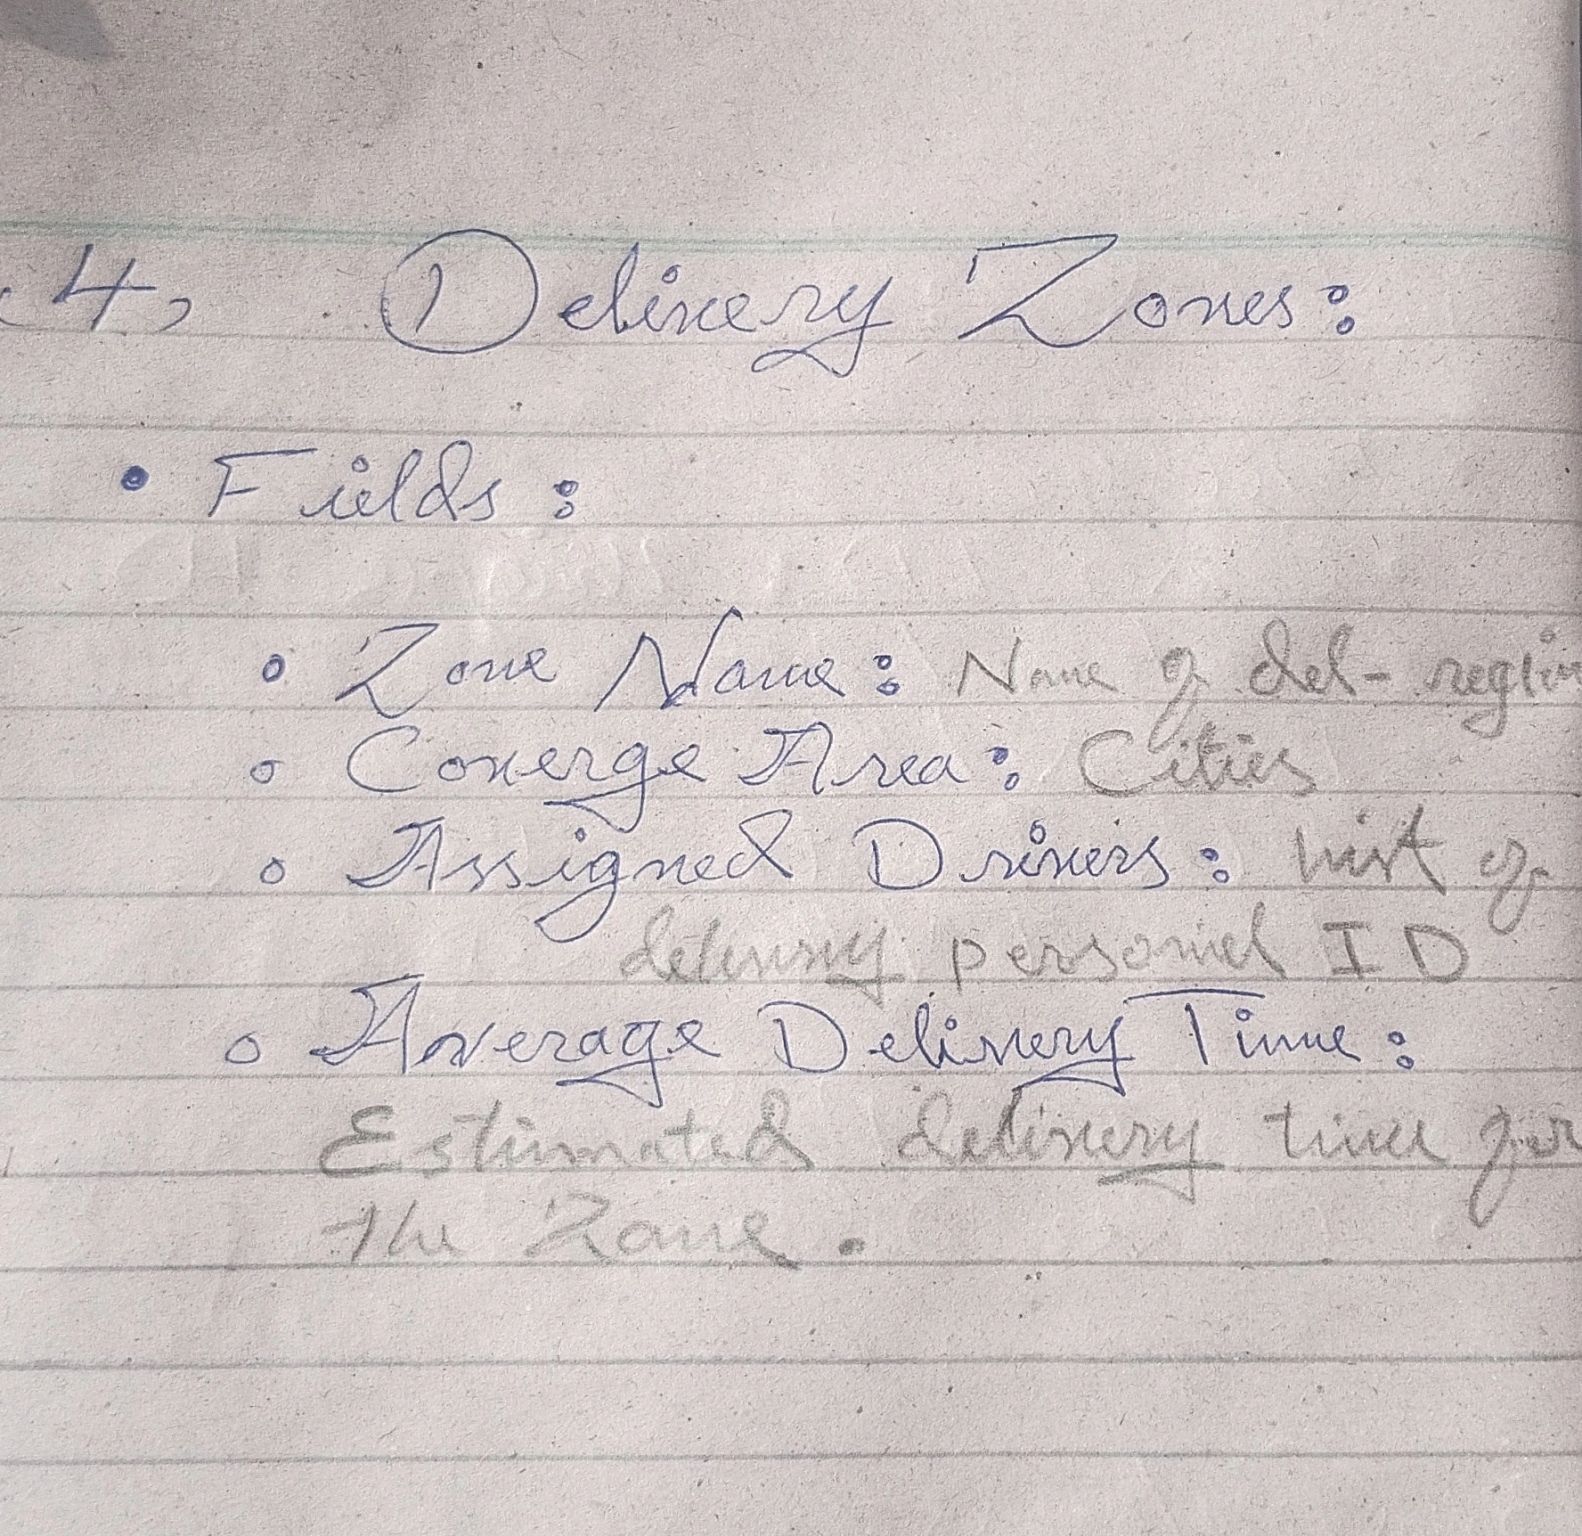 4, Delivery Zones:
• Fields:
o Zone Name: Name of del- region
o Converge Area: Cities
o Assigned Drivers: List of
delivery personnel ID
o Average Delivery Time:
Estimated delivery time for
the Zone.